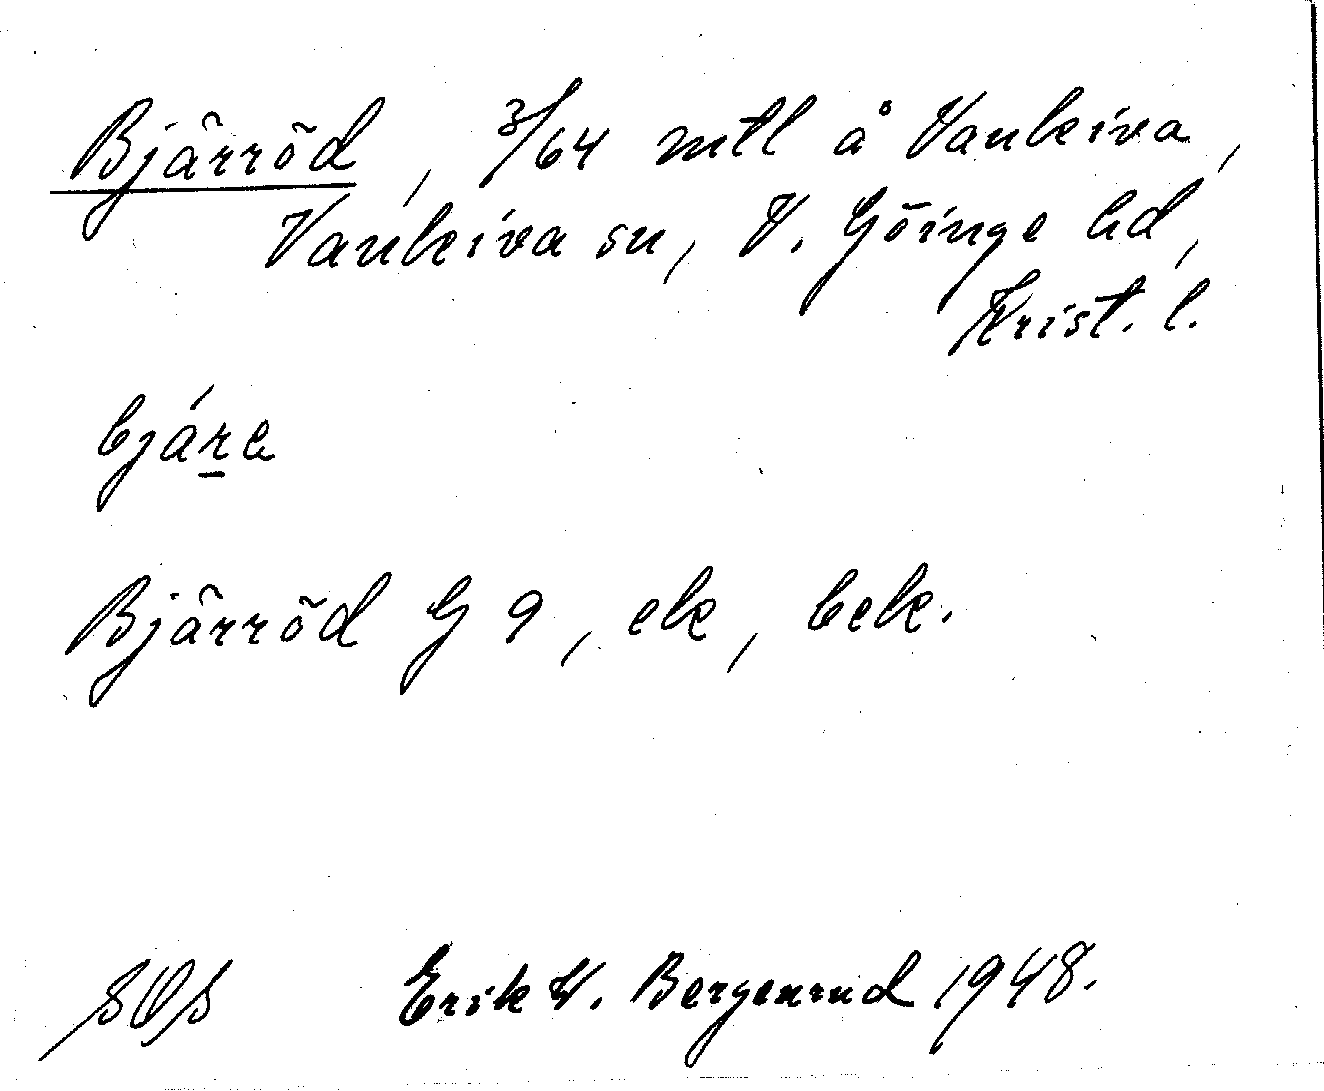 Bjärröd, 3/64 mtl å Vankiva,
Vankiva sn, V. Göinge hd,
Krist. l.
bjára
Bjärröd G 9, ek, bek.
SOS Erik W. Bergenrud 1948.